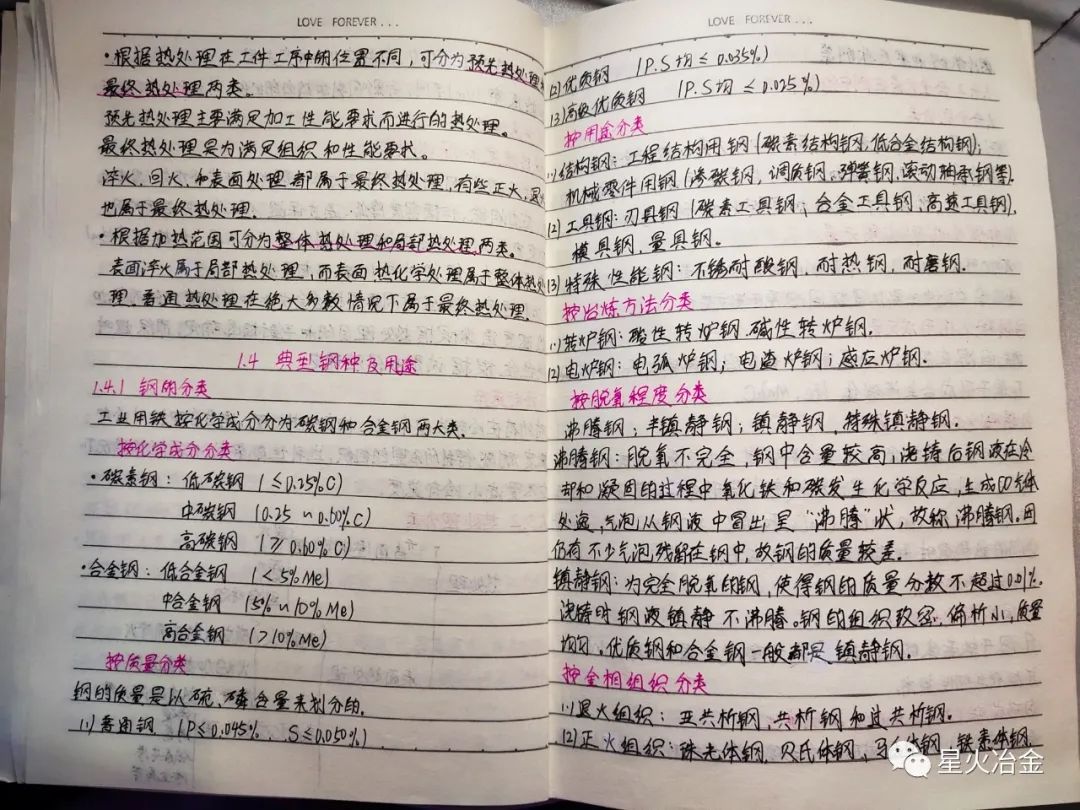 LOVE FOREVER...
·根据热处理在工件工序中的位置不同,可分为预先热处理和
最终热处理两类。
预先热处理主要满足加工性能要求而进行的热处理。
最终热处理是为满足组织和性能要求。
淬火、回火、和表面处理都属于最终热处理,有些正火、退火
也属于最终热处理.
·根据加热范围可分为整体热处理和局部热处理两类。
表面淬火属于局部热处理;而表面热化学处理属于整体热处
理.普通热处理在绝大多数情况下属于最终热处理.
1.4 典型钢种及用途
1.4.1 钢的分类
工业用铁按化学成分分为碳钢和合金钢两大类.
按化学成分分类
·碳素钢:低碳钢 (≤0.25%C)
中碳钢 (0.25~0.60%C)
高碳钢 (≥0.60%C)
·合金钢:低合金钢 (<5%Me)
中合金钢 (5%~10%Me)
高合金钢 (>10%Me)
按质量分类
钢的质量是以硫、磷含量来划分的.
(1)普通钢 (P≤0.045%、S≤0.050%)
LOVE FOREVER...
(2)优质钢 (P.S均≤0.035%)
(3)高级优质钢 (P.S均≤0.025%)
按用途分类
(1)结构钢:工程结构用钢(碳素结构钢,低合金结构钢);
机械零件用钢(渗碳钢,调质钢,弹簧钢,滚动轴承钢等).
(2)工具钢:刃具钢(碳素工具钢、合金工具钢,高速工具钢),
模具钢,量具钢.
(3)特殊性能钢:不锈耐酸钢,耐热钢,耐磨钢.
按冶炼方法分类
(1)转炉钢:酸性转炉钢.碱性转炉钢.
(2)电炉钢:电弧炉钢;电渣炉钢;感应炉钢.
按脱氧程度分类
沸腾钢;半镇静钢;镇静钢,特殊镇静钢.
沸腾钢:脱氧不完全,钢中含量较高,浇铸后钢液在冷
却和凝固的过程中氧化铁和碳发生化学反应,生成CO气体
处逸,气泡从钢液中冒出呈"沸腾"状,故称沸腾钢.因
仍有不少气泡残留在钢中,故钢的质量较差.
镇静钢:为完全脱氧的钢,使得钢的质量分数不超过0.01%.
浇铸时钢液镇静不沸腾。钢的组织致密,偏析小,质量
均匀.优质钢和合金钢一般都是镇静钢.
按金相组织分类
(1)退火组织:亚共析钢、共析钢和过共析钢.
(2)正火组织:珠光体钢,贝氏体钢,马氏体钢,铁素体钢.
星火冶金